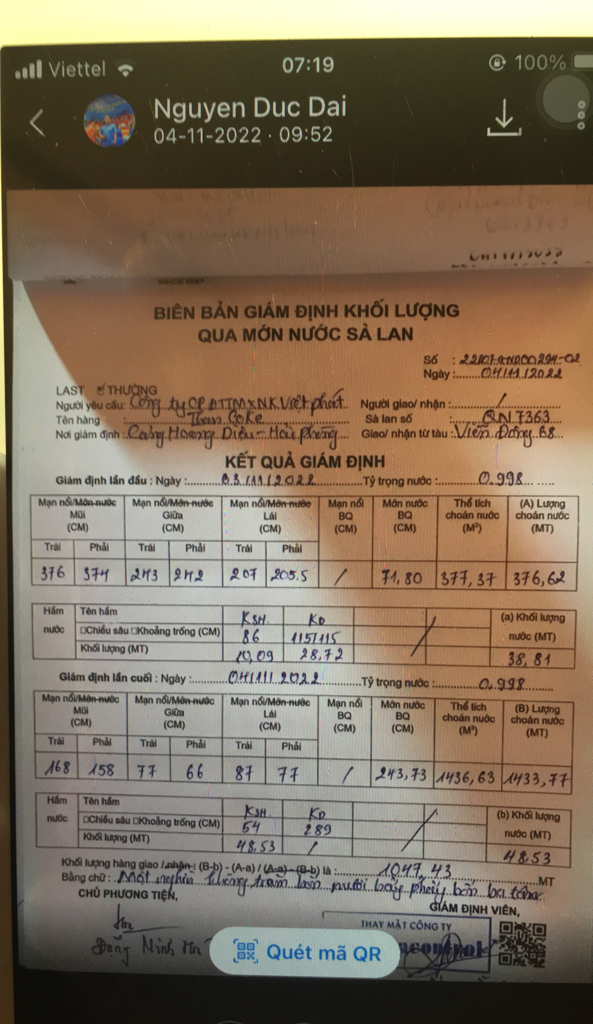 Viettel 07:19 100%
Nguyen Duc Dai
04-11-2022 · 09:52
BIÊN BẢN GIÁM ĐỊNH KHỐI LƯỢNG
QUA MỚN NƯỚC SÀ LAN
Số :
Ngày: 04/11/2022
LAST THƯỜNG
Người yêu cầu: Công ty CP ĐTTM XNK Việt phát Người giao/ nhận : /
Tên hàng : Than Coke Sà lan số : QN 7363
Nơi giám định : Cảng Hoàng Diệu - Hải phòng Giao/ nhận từ tàu : Viễn Đông 68
KẾT QUẢ GIÁM ĐỊNH
Giám định lần đầu : Ngày : 03/11/2022 Tỷ trọng nước : 0.998
Mạn nổi/Mớn nước Mũi (CM) Mạn nổi/Mớn nước Giữa (CM) Mạn nổi/Mớn nước Lái (CM) Mạn nổi BQ (CM) Mớn nước BQ (CM) Thể tích choán nước (M³) (A) Lượng choán nước (MT)
Trái Phải Trái Phải Trái Phải
376 374 243 242 207 205.5 / 71,80 377,37 376,62
Hầm nước Tên hầm KSH KD (a) Khối lượng nước (MT)
□Chiều sâu □Khoảng trống (CM) 86 115/115
Khối lượng (MT) 10,09 28,72 38,81
Giám định lần cuối : Ngày : 04/11/2022 Tỷ trọng nước : 0.998
Mạn nổi/Mớn nước Mũi (CM) Mạn nổi/Mớn nước Giữa (CM) Mạn nổi/Mớn nước Lái (CM) Mạn nổi BQ (CM) Mớn nước BQ (CM) Thể tích choán nước (M³) (B) Lượng choán nước (MT)
Trái Phải Trái Phải Trái Phải
168 158 77 66 87 77 / 243,73 1436,63 1433,77
Hầm nước Tên hầm KSH KD (b) Khối lượng nước (MT)
□Chiều sâu □Khoảng trống (CM) 54 289
Khối lượng (MT) 48,53 / 48,53
Khối lượng hàng giao /nhận : (B-b) - (A-a) / (A-a) - (B-b) là : 1047,43 MT
Bằng chữ : Một nghìn không trăm bốn mươi bảy phẩy bốn ba tấn
CHỦ PHƯƠNG TIỆN, GIÁM ĐỊNH VIÊN,
THAY MẶT CÔNG TY
Đồng Minh
Quét mã QR